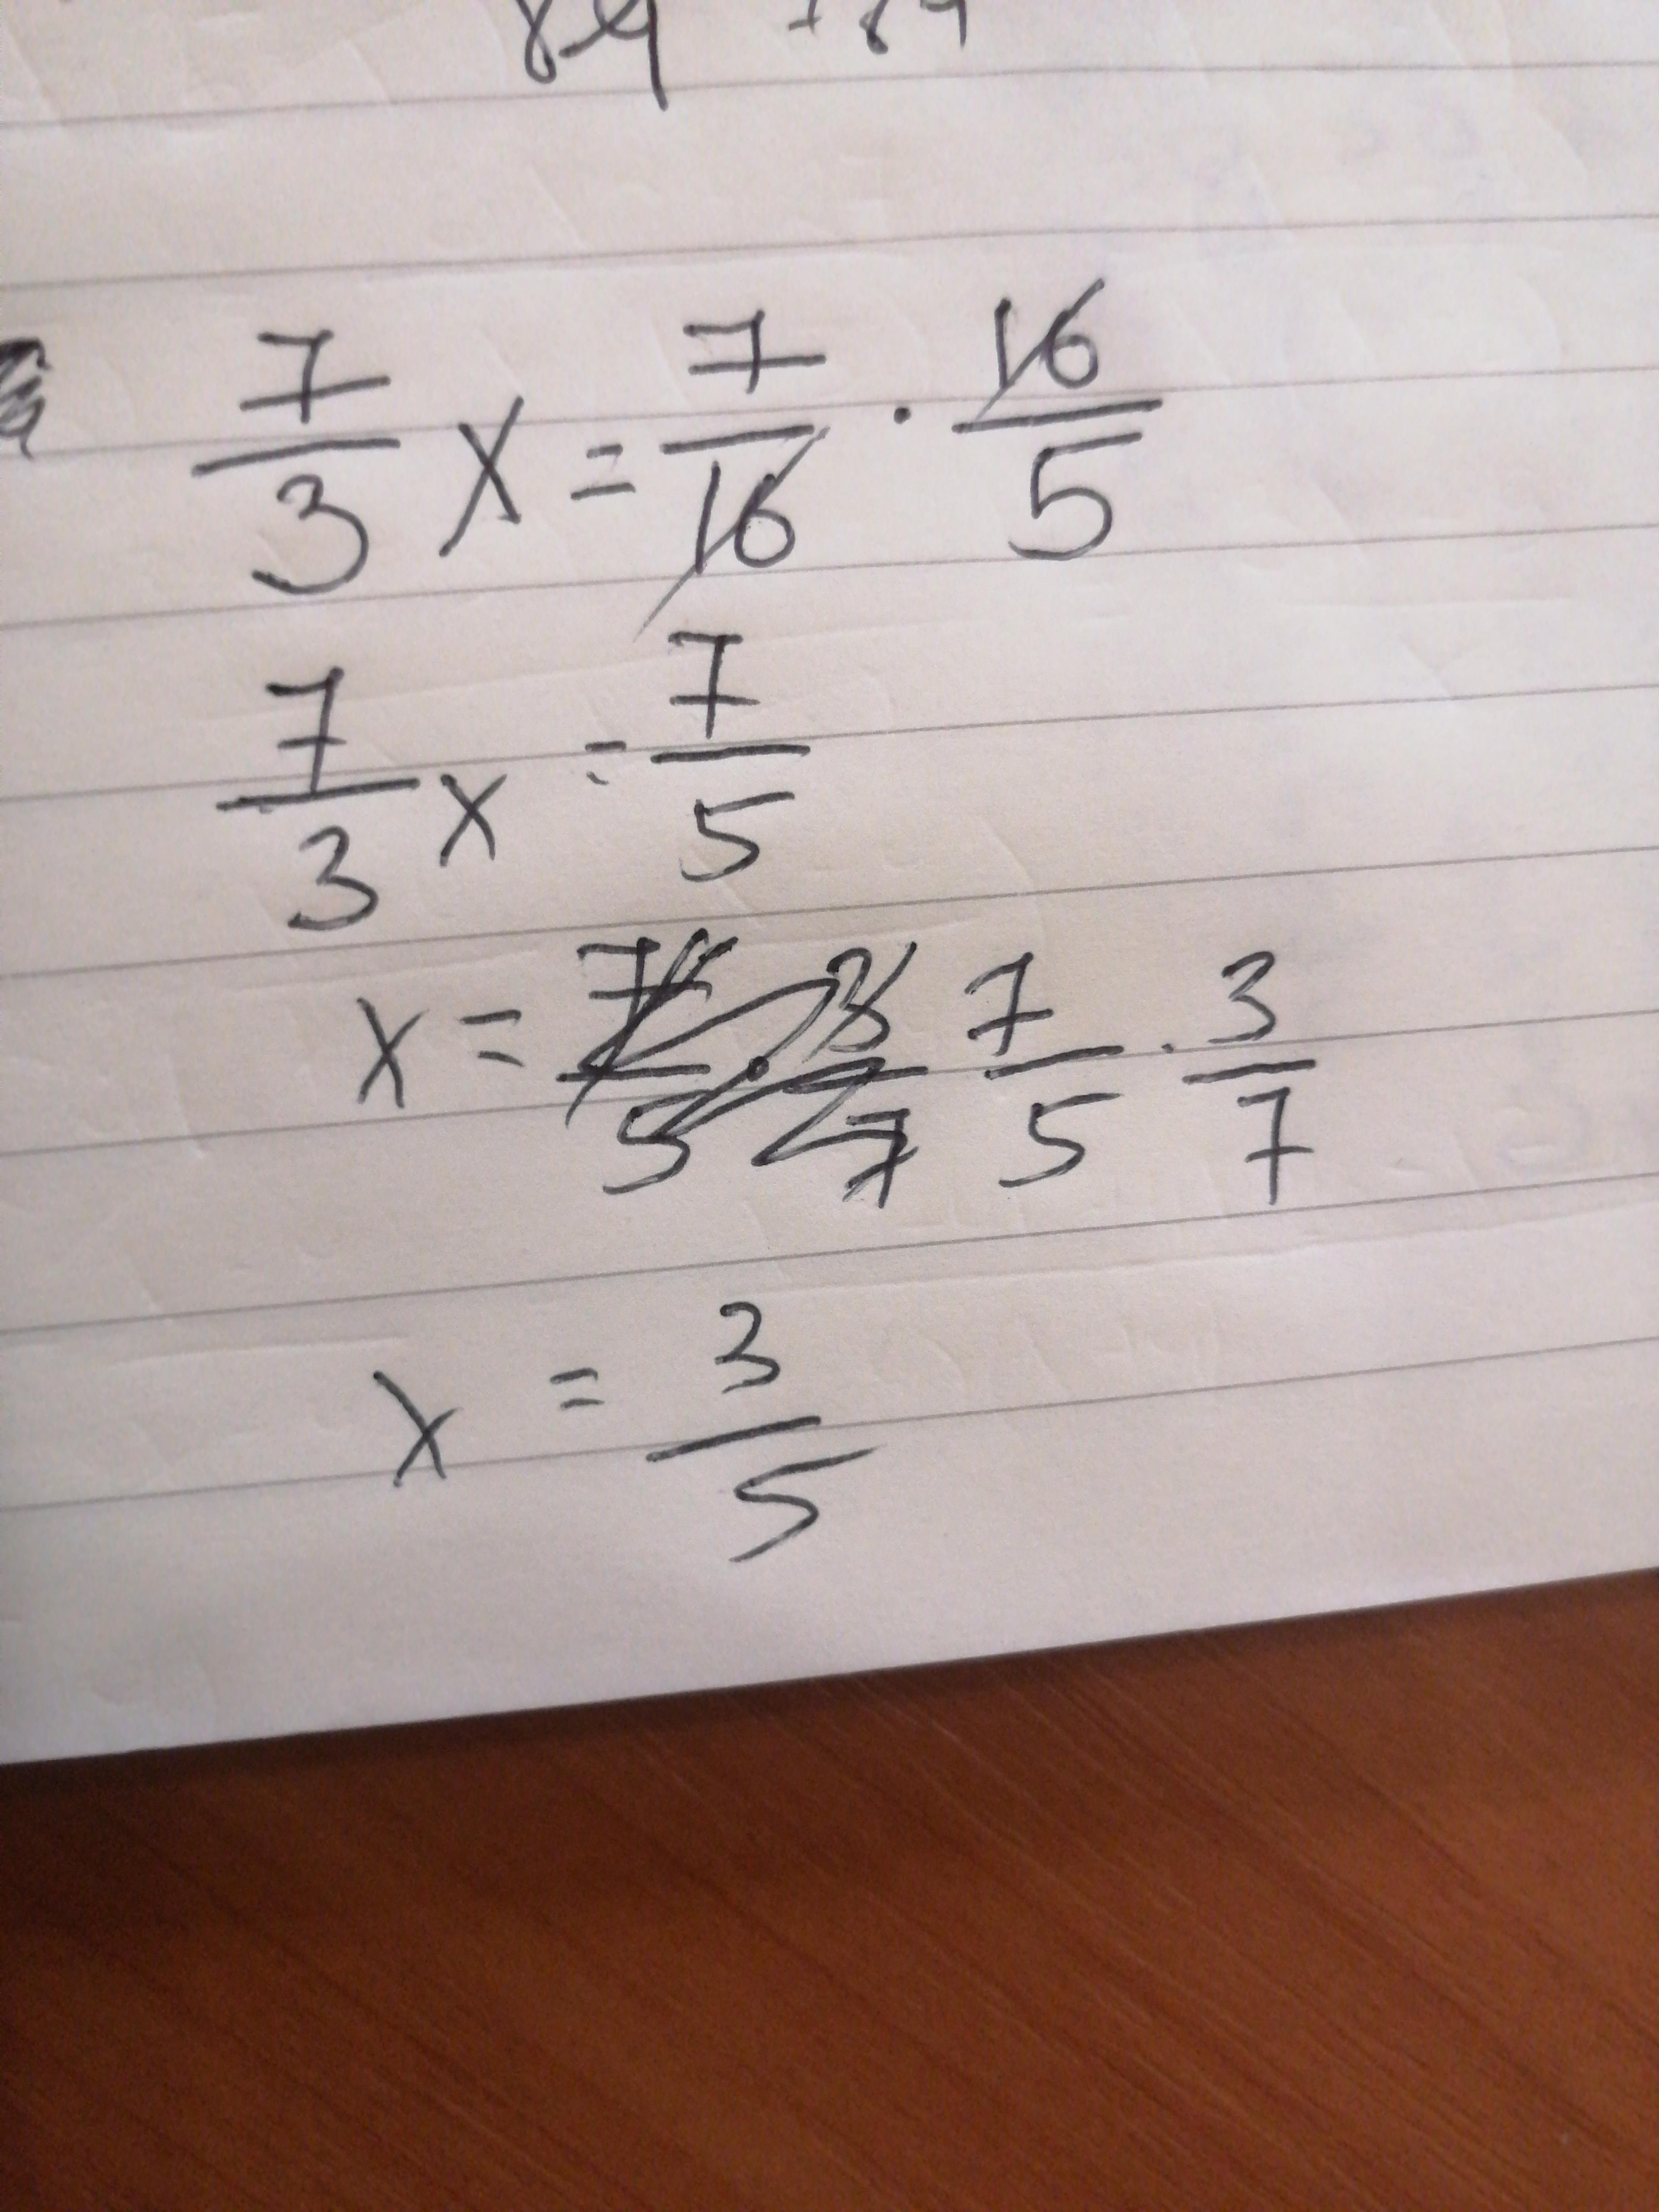 7/3 x = 7/16 · 16/5
7/3 x = 7/5
x = 7/5 · 3/7
x = 3/5